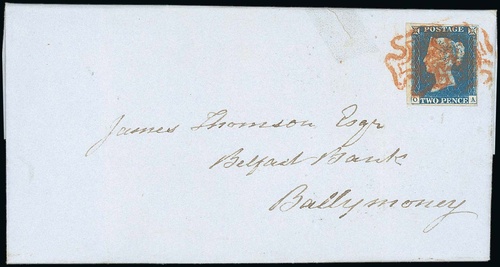 POSTAGE
TWO PENCE
James Thomson Esqr
Belfast Bank
Ballymoney